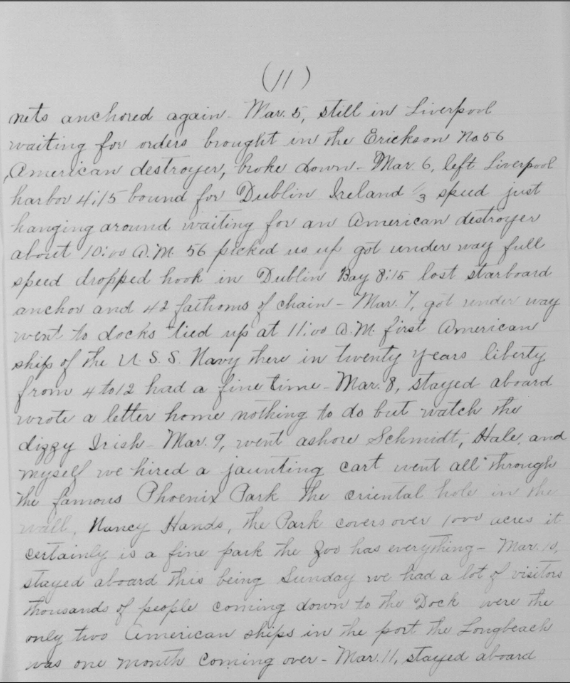 (11)
nets anchored again - Mar. 5, still in Liverpool
waiting for orders brought in the Erickson No 56
American destroyer, broke down - Mar. 6, left Liverpool
harbor 4:15 bound for Dublin Ireland 1/3 speed just
hanging around waiting for an American destroyer
about 10:00 A.M. 56 picked us up got under way full
speed dropped hook in Dublin Bay 8:15 lost starboard
anchor and 42 fathoms of chain - Mar. 7, got under way
went to docks tied up at 11:00 A.M. first American
ship of the U.S.S. Navy there in twenty years liberty
from 4 to 12 had a fine time - Mar. 8, stayed aboard
wrote a letter home nothing to do but watch the
dizzy Irish - Mar. 9, went ashore Schmidt, Hale, and
myself we hired a jaunting cart went all through
the famous Phoenix Park the oriental hole in the
wall, Nancy Hands, the Park covers over 1000 acres it
certainly is a fine park the Zoo has everything - Mar. 10,
stayed aboard this being Sunday we had a lot of visitors
thousands of people coming down to the Dock were the
only two American ships in the port the Longbeach
was one month coming over - Mar. 11, stayed aboard